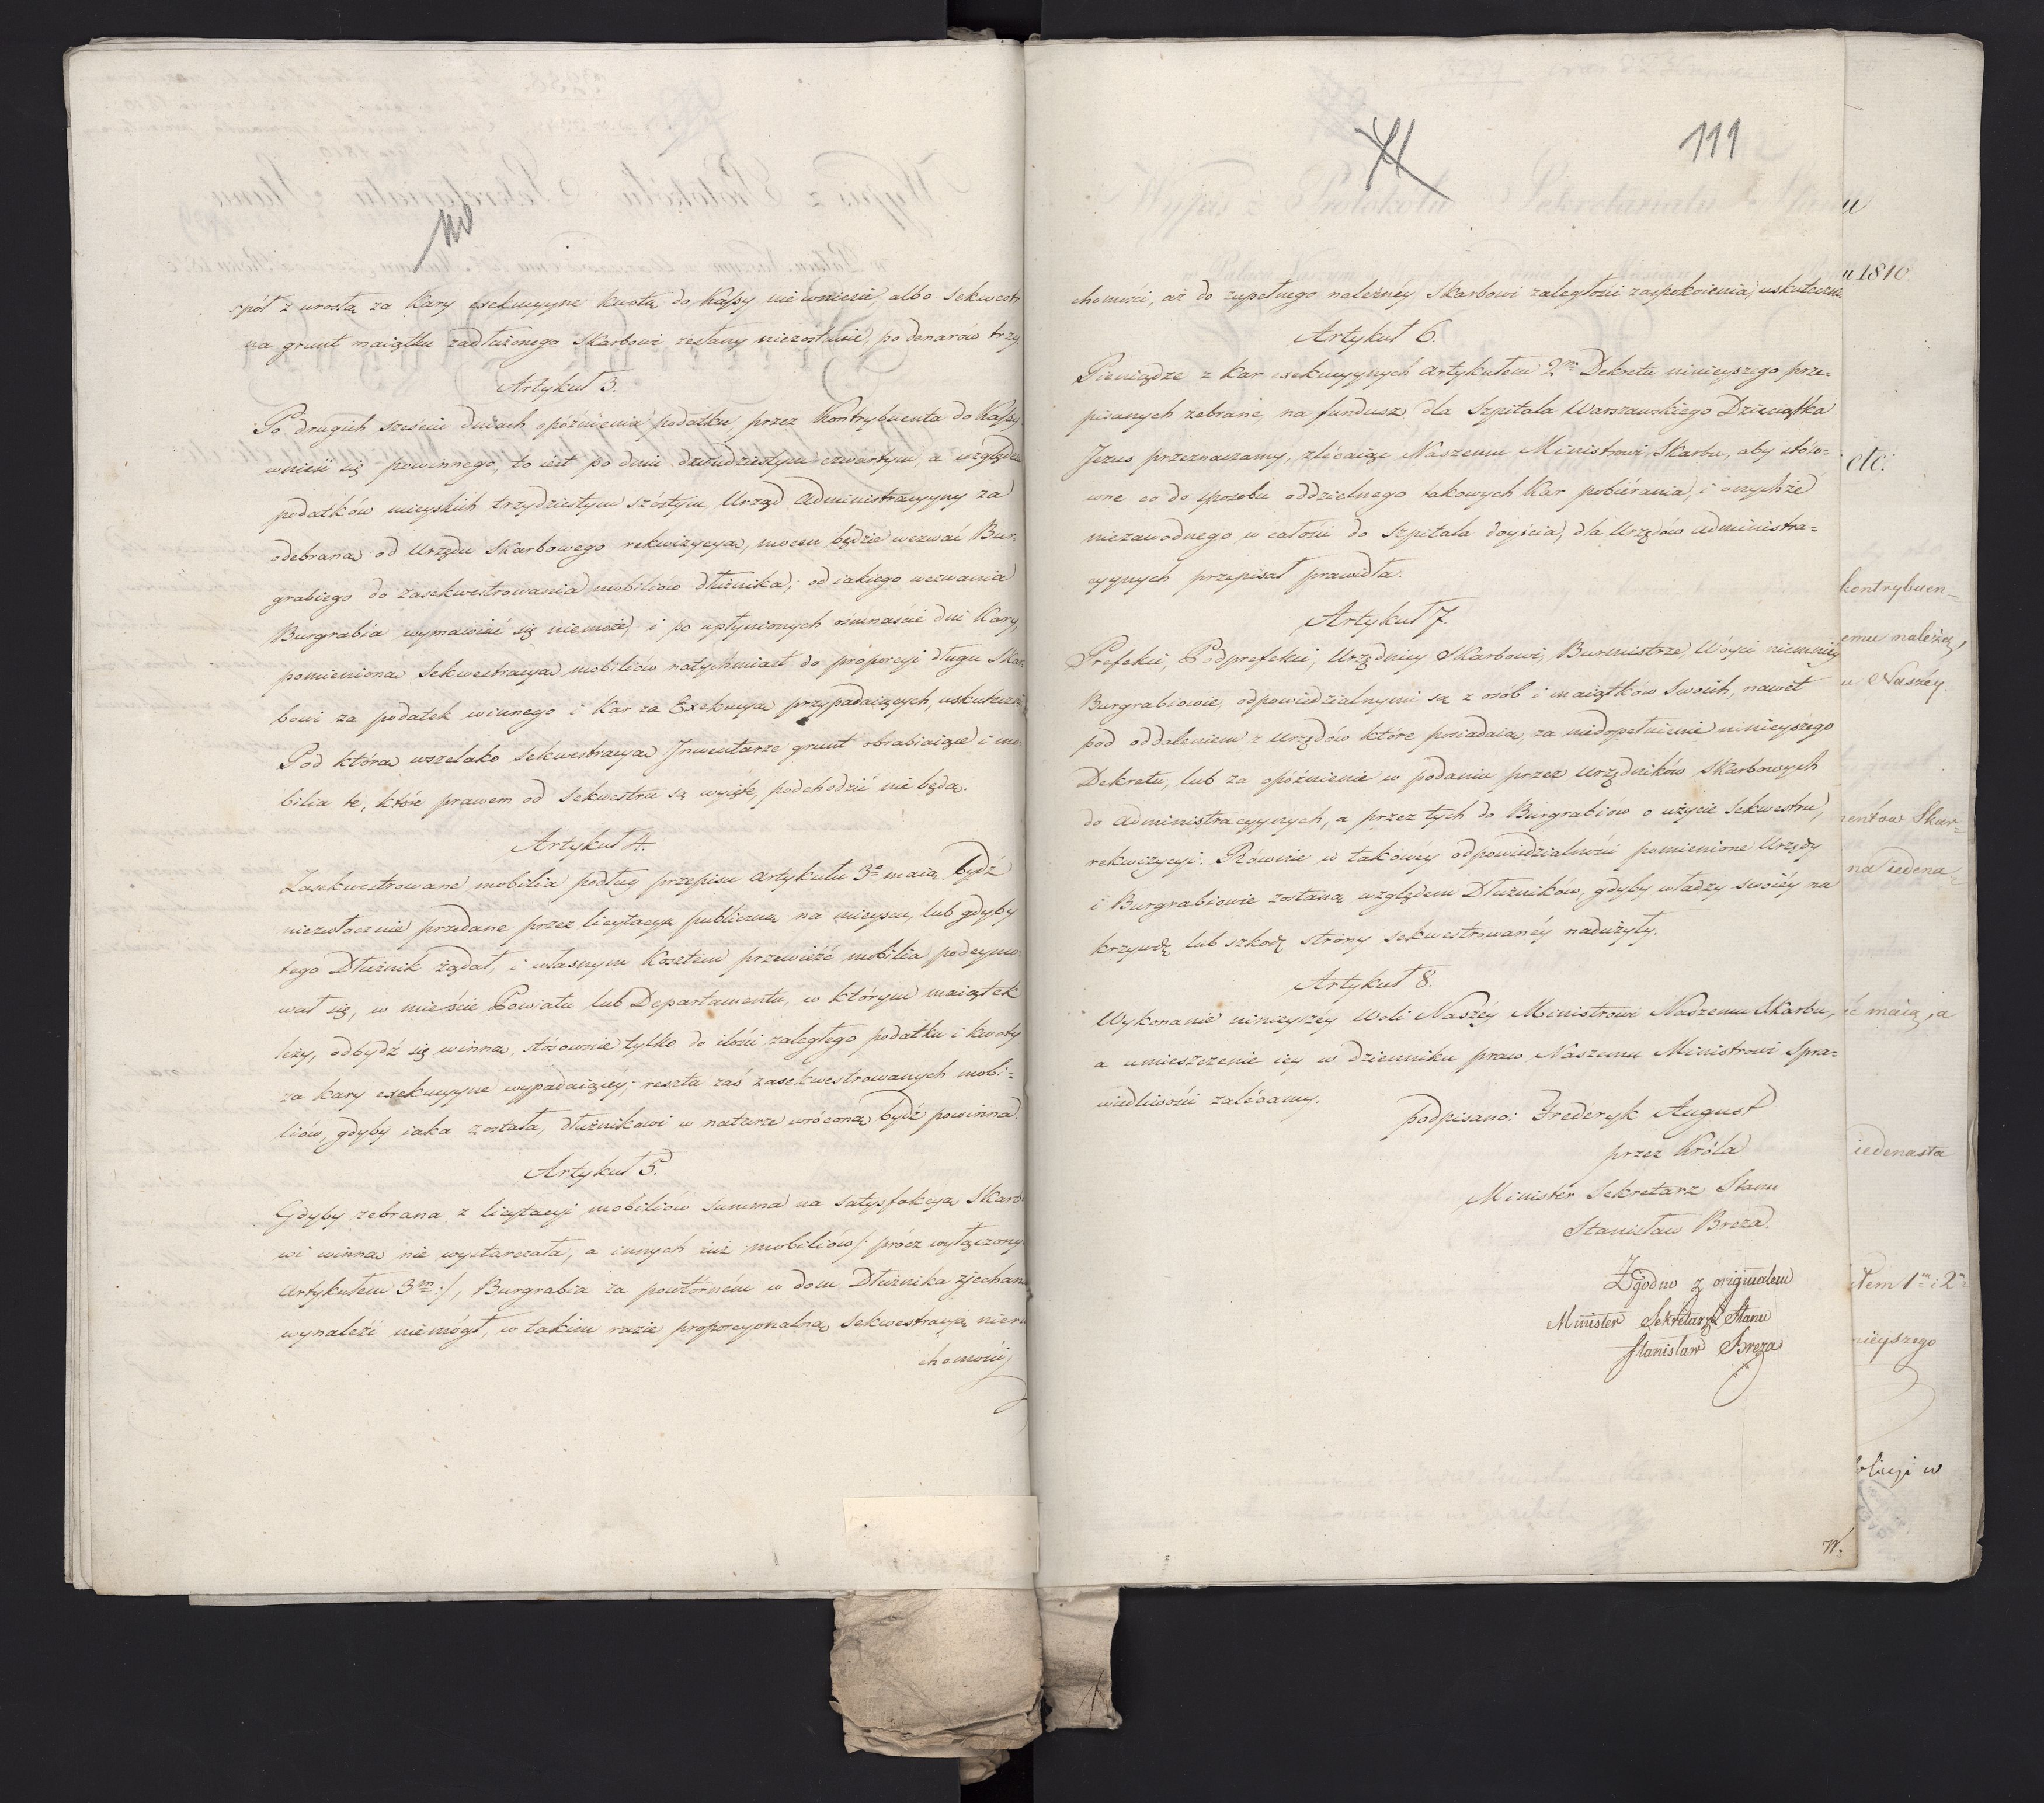 110
spół z urosłą za Kary exekucyyne kwotą do Kassy niewniesie, albo sekwestr
na grunt maiątku zadłużonego Skarbowi zesłany niezostanie, po denarów trzy.
Artykuł 3.
Po drugich sześciu dniach opóźnienia podatku, przez Kontrybuenta do Kassy
wnieść się powinnego, to iest po dniu dwudziestym czwartym, a względem
podatków mieyskich trzydziestym szóstym, Urząd Administracyyny za
odebraną od Urzędu Skarbowego rekwizycyą, mocen będzie wezwać Bur-
grabiego do zasekwestrowania mobiliów dłużnika; od iakiego wezwania
Burgrabia wymawiać się niemoże, i po upłynionych ośmnaście dni Kary,
pomienioną sekwestracyą mobiliów natychmiast do proporcyi długu Skar-
bowi za podatek winnego i Kar za Exekucyą przypadaiących, uskuteczni.
Pod którą wszelako sekwestracyą Inwentarze grunt obrabiaiące i mo-
bilia te, które prawem od sekwestru są wyięte, podchodzić nie będą.
Artykuł 4.
Zasekwestrowane mobilia podług przepisu Artykułu 3º maią bydź
niezwłocznie przedane przez licytacyą publiczną na mieyscu, lub gdyby
tego Dłużnik żądał, i własnym Kosztem przewieźć mobilia podeymo-
wał się, w mieście Powiatu lub Departamentu, w którym maiątek
leży, odbydź się winna, stósownie tylko do ilości zaległego podatku i kwoty
za kary exekucyyne wypadaiącey; reszta zaś zasekwestrowanych mobi-
liów, gdyby iaka została, dłużnikowi w naturze wrócona bydź powinna.
Artykuł 5.
Gdyby zebrana z licytacyi mobiliów summa na satysfakcyą Skarbo-
wi winna nie wystarczała, a innych iuż mobiliów /: prócz wyłączonych
Artykułem 3m :/, Burgrabia za powtórnem w dom Dłużnika zjechaniem
wynaleźć niemógł, w takim razie proporcyonalną sekwestracyą nieru-
chomości,
11
111
chomości, aż do zupełnego należnéy Skarbowi zaległości zaspokoienia, uskuteczni
Artykuł 6.
Pieniądze z kar exekucyynych Artykułem 2m Dekretu ninieyszego prze-
pisanych zebrane, na fundusz dla Szpitala Warszawskiego Dzieciątka
Jezus przeznaczamy, zlécaiąc Naszemu Ministrowi Skarbu, aby stóso-
wne co do sposobu oddzielnego takowych Kar pobiérania, i onychże
niezawodnego w całości do Szpitala doyścia, dla Urzędów administra-
cyynych przepisał prawidła.
Artykuł 7.
Prefekci, Podprefekci, Urzędnicy Skarbowi, Burmistrze, Wóyci niemniey
Burgrabiowie, odpowiedzialnymi są z osób i maiątków swoich, nawet
pod oddaleniem z Urzędów które posiadaią, za niedopełnienie ninieyszego
Dekretu, lub za opóźnienie w podaniu przez Urzędników Skarbowych
do Administracyynych, a przez tych do Burgrabiow o użycie Sekwestru,
rekwizycyi. Równie w takowéy odpowiedzialności pomienione Urzędy
i Burgrabiowie zostaną względem Dłużników, gdyby władzy swoiéy na
krzywdę lub szkodę strony sekwestrowanéy nadużyły.
Artykuł 8.
Wykonanie ninieyszéy Woli Naszéy Ministrowi Naszemu Skarbu,
a umieszczenie iéy w dzienniku praw Naszemu Ministrowi Spra-
wiedliwości zalécamy.
podpisano: Fréderyk August
przez Króla
Minister Sekretarz Stanu
Stanisław Breza.
Zgodno z originałem
Minister Sekretarz Stanu
Stanisław Breza
u
u 1810.
etc:
kontrybuen-
emu należeć,
u Naszéy
entow Skar-
na iedena-
ć maią, a
iedenasta
łem 1m i 2m
nieyszego